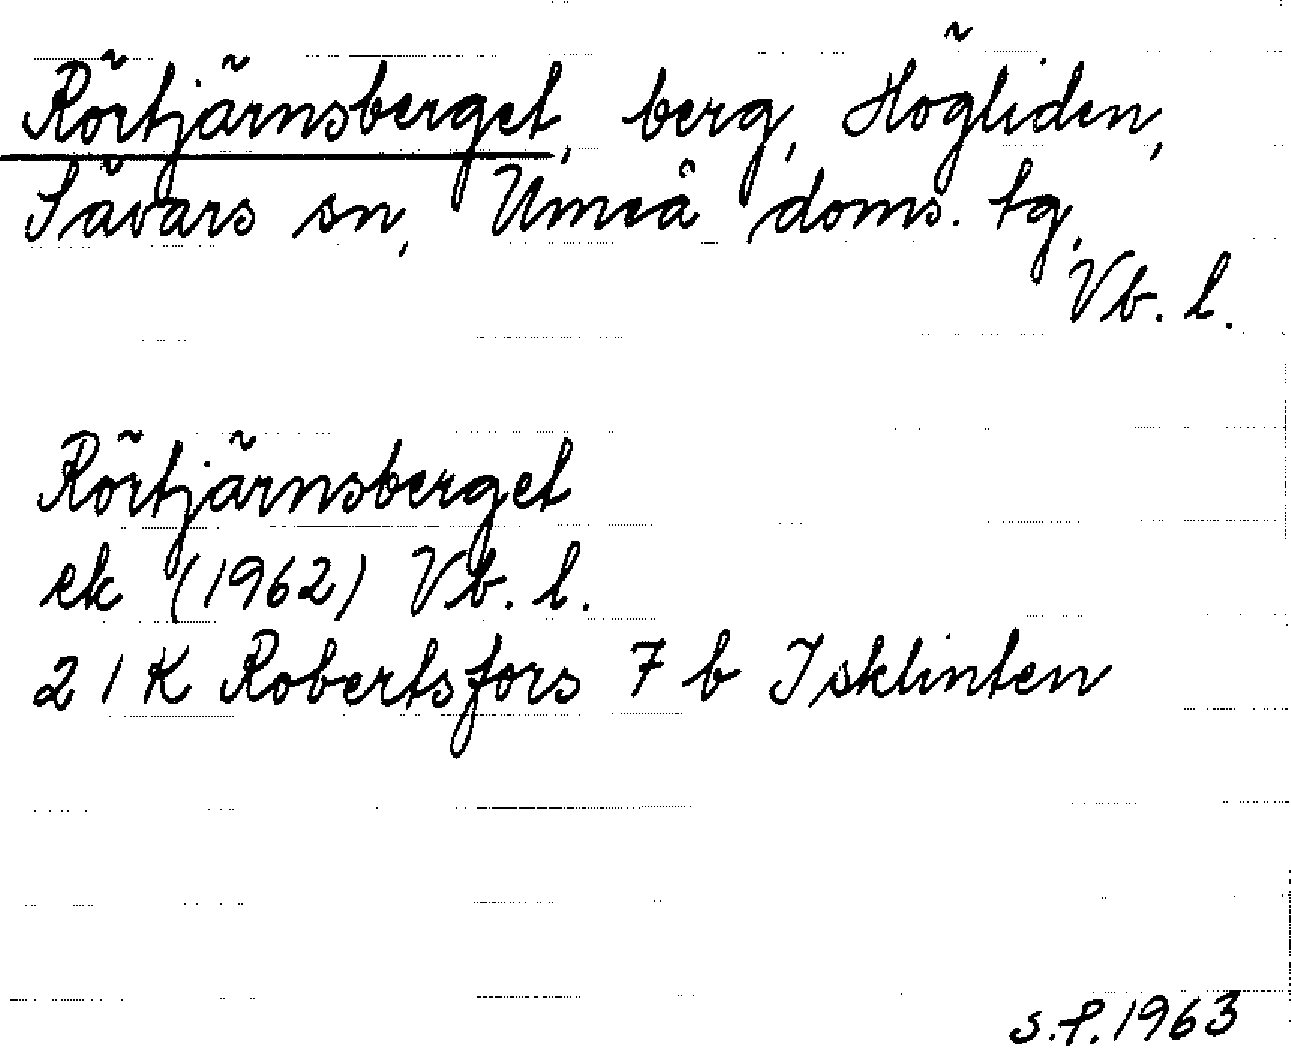 Rörtjärnsberget, berg, Högliden,
Sävars sn, Umeå doms. tg,
Vb. l.
Rörtjärnsberget
ek (1962) Vb. l.
21K Robertsfors 7 b Isklinten
S.P. 1963